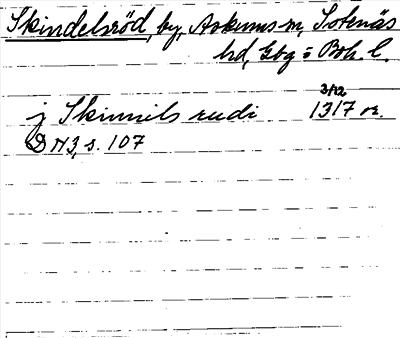 Skindelsröd, by, Askums sn, Sotenäs
hd, Gbg o Boh. l.
3/12
j Skinnils rudi 1317 or.
DN 3, s. 107